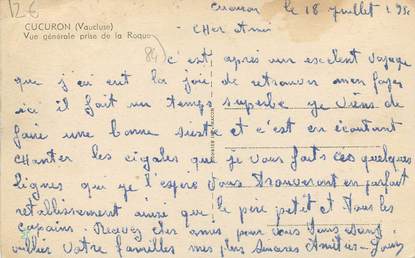 12€
CUCURON (Vaucluse)
Vue générale prise de la Roque
84
Cucuron le 18 juillet 195
Cher Ami
c'est après un excellent voyage
que j'ai eut la joie de retrouver mon foyer
ici il fait un temps superbe je viens de
faire une bonne sieste et c'est en écoutant
chanter les cigales que je vous fait ces quelques
lignes qui je l'espère vous trouveront en parfait
retablissement ainsi que le père petit et tous les
copains. Recevez cher ami pour vous sans
oublier votre familles mes plus sincères Amitiés